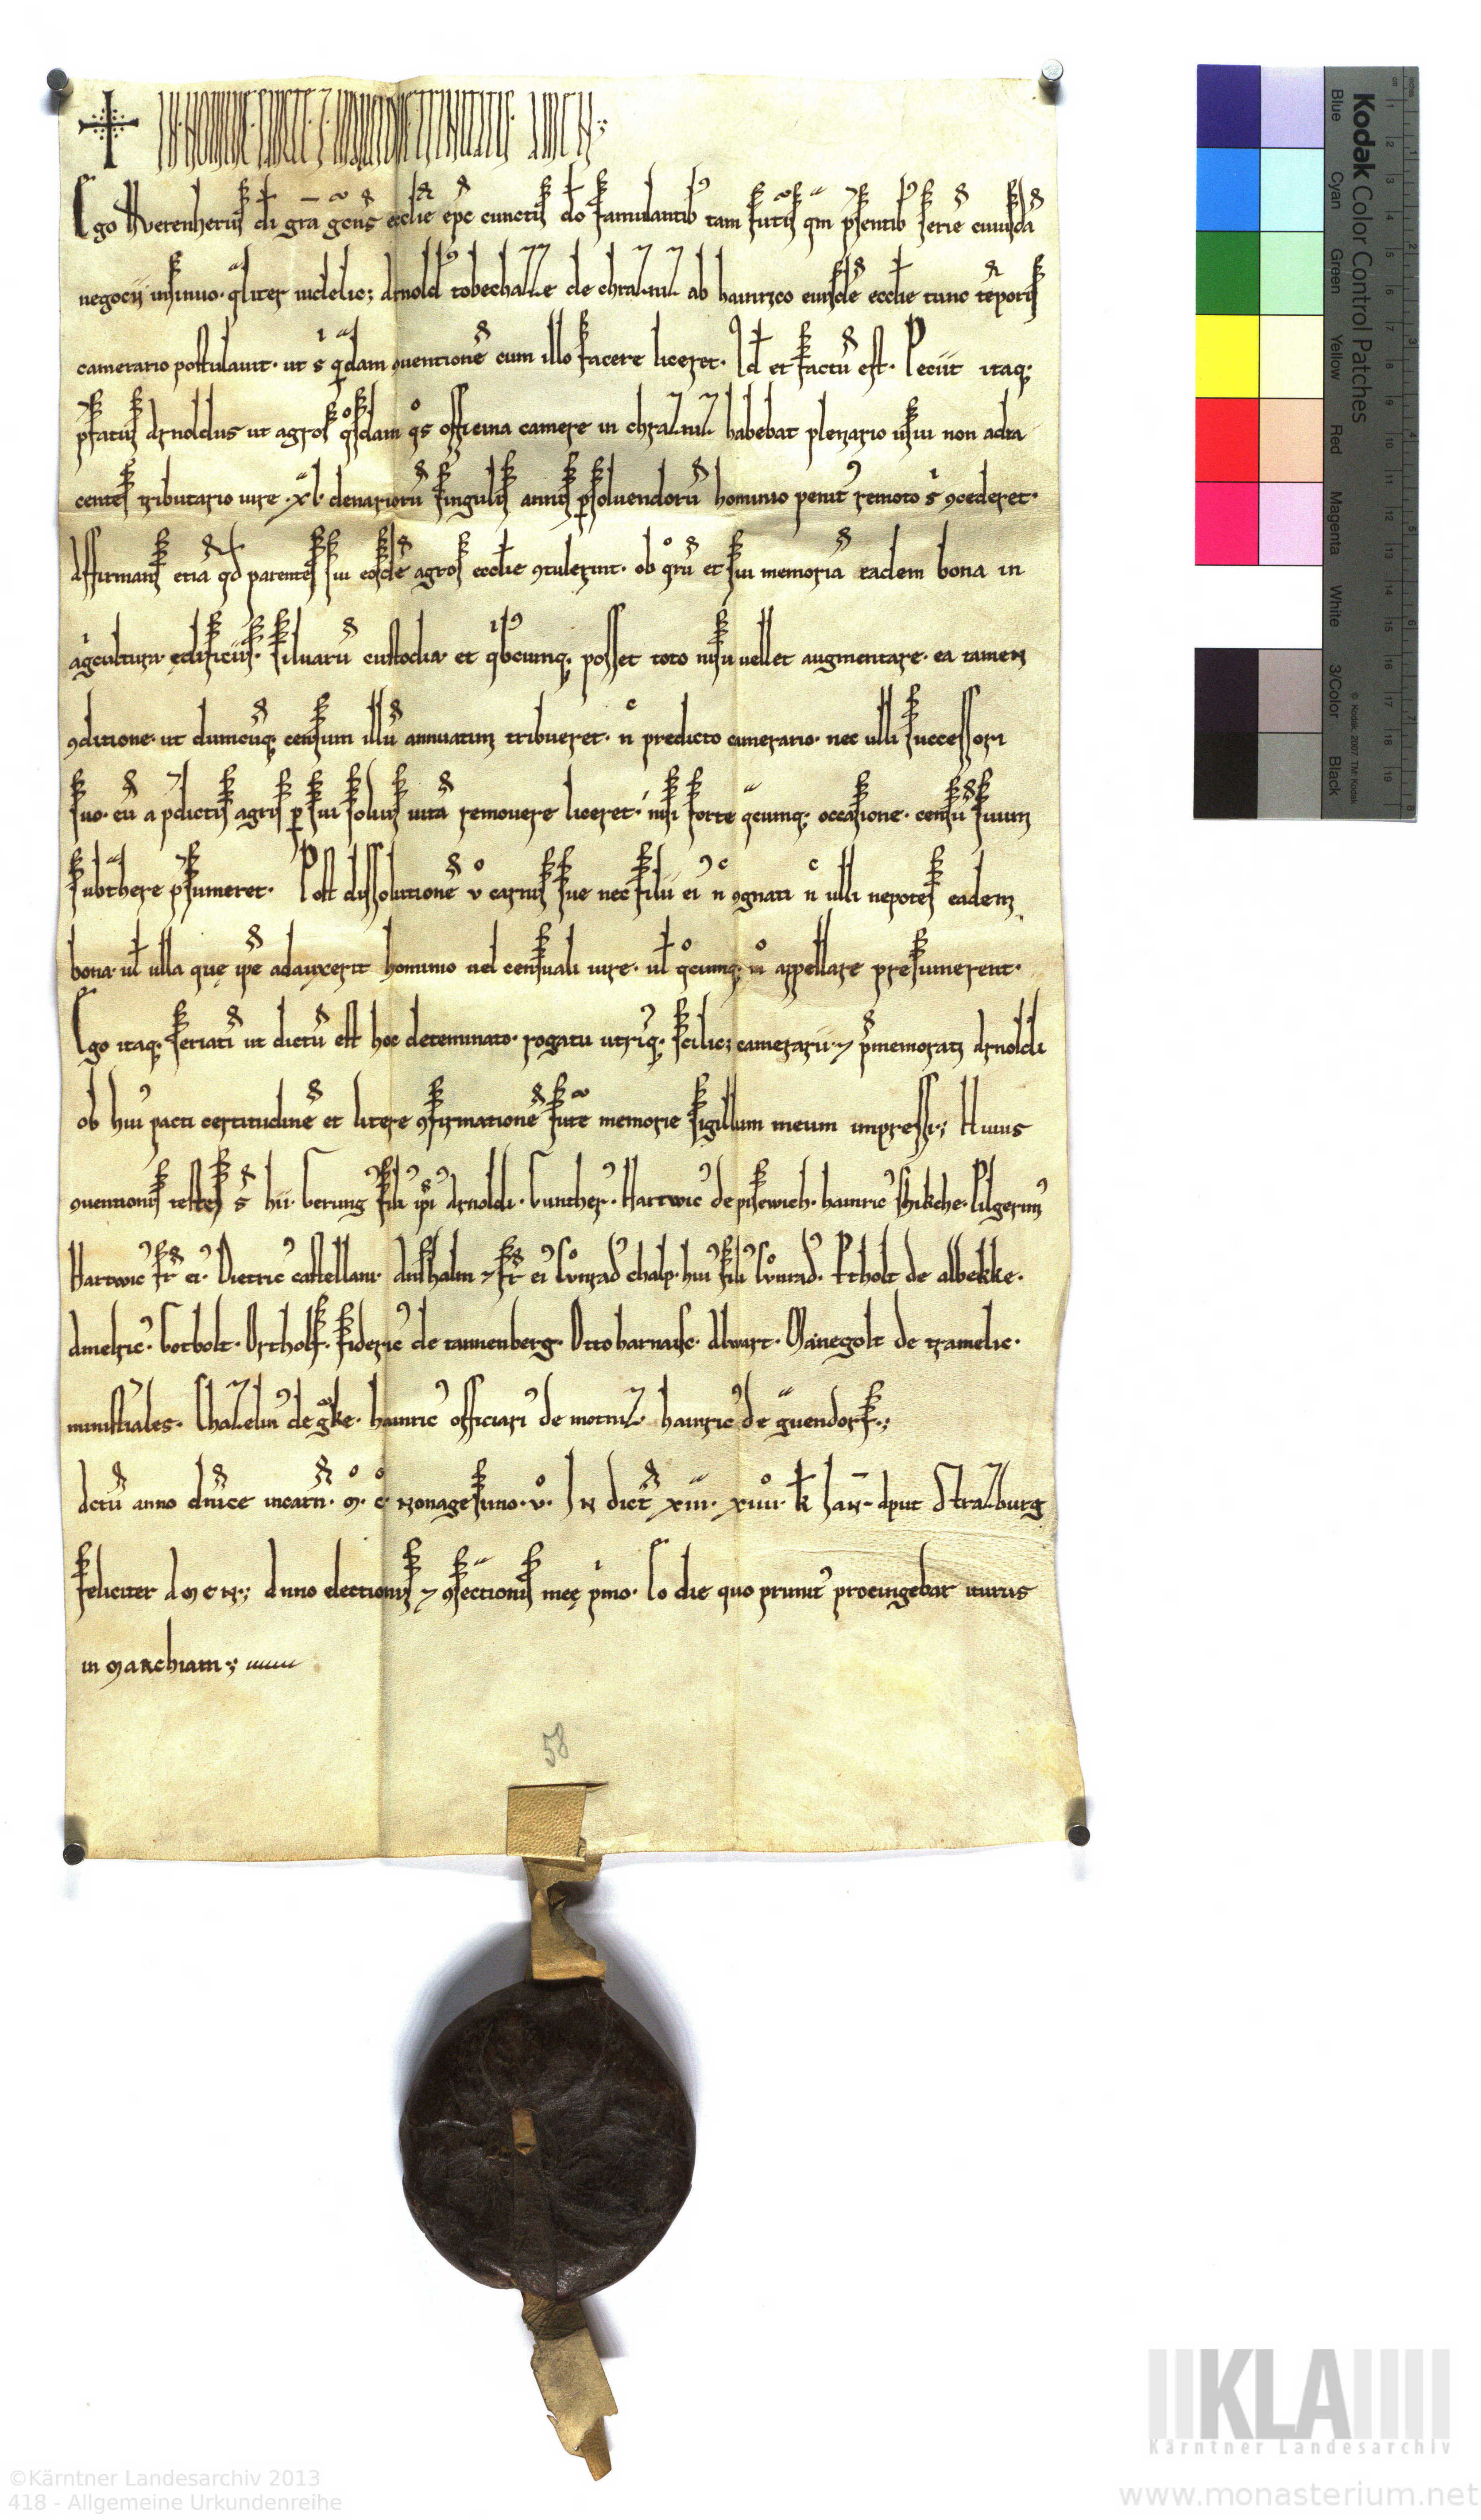 IN NOMINE SANCTE & INDIVIDUE TRINITATIS AMEN
Ego VVerenherus di gra gcns ecclie epc cunctis do famulantib tam futis qm psentib serie cuiusda
negocii insinuo · qliter uidelic; Arnold de ab hainrico eiusde ecclie tunc teporis
camerario postulauit · ut s qdam ꝯuentione cum illo facere liceret · Id et factu est · Peciit itaq;
pfatus Arnoldus ut agros qsdam qs officina camere in habebat plenario usui non adia
centes tributario iure · xl · denarioru singulis annis psoluendoru hominio penit remoto s ꝯcederet ·
Affirmans etia qd parentes sui eosde agros ecclie ꝯtulerint · ob qru et sui memoria eadem bona in
agcultura · edificiis · siluaru custodia · et qbcumq; posset toto nisu uellet augmentare · ea tamen
ꝯditione · ut dumcuq; censum illu annuatim tribueret · n predicto camerario · nec ulli successori
suo · eu a pdictis agris p sui solius uita remouere liceret · nisi forte qcumq; occasione · censu suum
subthere psumeret · Post dissolutione v carnis sue nec filii ei n ꝯgnati n ulli nepotes eadem
bona · ul ulla que ipe adauxerit hominio uel censuali iure · ul qcumq; m appellare presumerent ·
Ego itaq; seriati ut dictu est hoc determinato · rogatu utriq; scilic; camerarii · & pmemorati Arnoldi
ob hui pacti certitudine et litere ꝯfirmatione fute memorie sigillum meum impressi; Huius
ꝯuentionis testes s hii · Gerung fili ipi Arnoldi · Gunther · Hartwic de pisewich · hainric shikche · Pilgerim
Hartwic fr ei · Dietric castellan · Anshalm & fr ei Cunrad chalp · hui fili Cunrad · Etholt de albekke ·
Amelric · Gotbolt · Ortholf · frideric de tannenberg · Otto harnasc · Albwart · Manegolt de tramelic ·
ministiales · de gke · hainric officiari de hainric de guendorf ·;
Actu anno dnice incarn · M · C · Nonagesimo · v · INdict xiii · xiiii · k IaN - Aput Strazburg
feliciter AMEN ·; Anno electionis & ꝯsectionis mee pmo · Eo die quo primit procingebar iturus
in Marchiam ·;
58
Kodak Color Control Patches
Blue Cyan Green Yellow Red Magenta White 3/Color Black
© Kodak 2007 TM: Kodak
KLA
Kärntner Landesarchiv
©Kärntner Landesarchiv 2013
418 - Allgemeine Urkundenreihe
www.monasterium.net